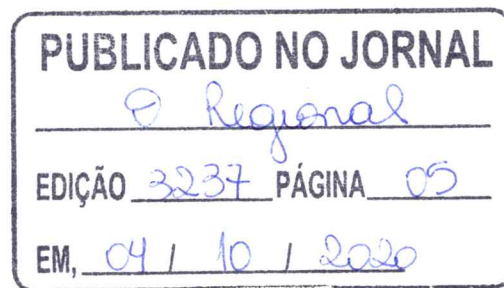 PUBLICADO NO JORNAL
O Regional
EDIÇÃO 3237 PÁGINA 05
EM, 04 / 10 / 2020